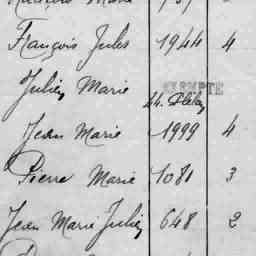 François Jules 1944 4
Julien Marie EXEMPTE
Jean Marie 1999 4
Pierre Marie 1081 3
Jean Marie Julien 648 2